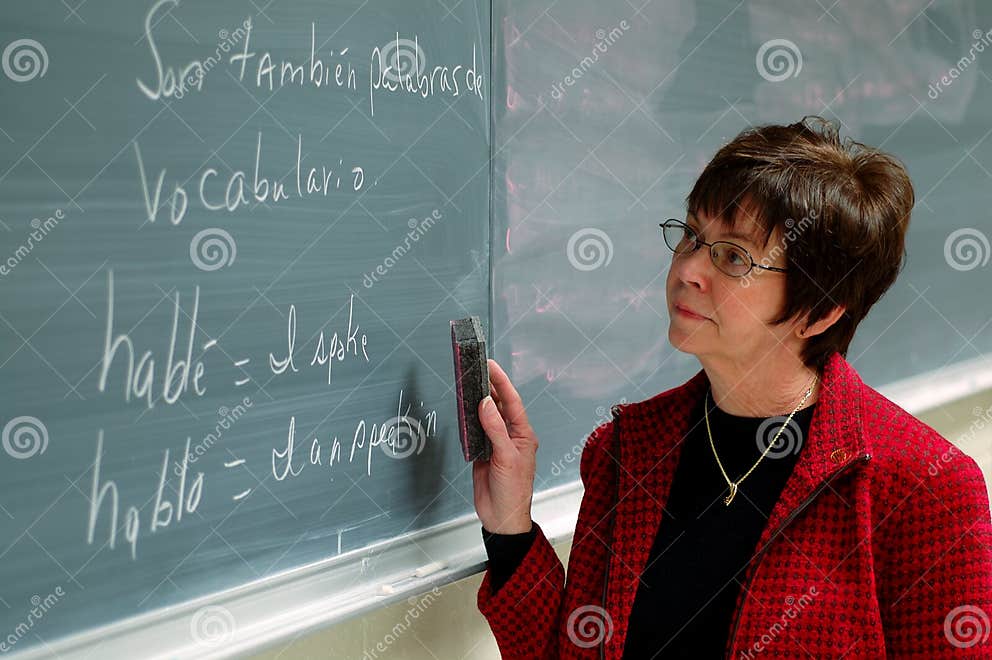 Son también palabras de
vocabulario.
hablé = I spoke
hablo = I am speakin